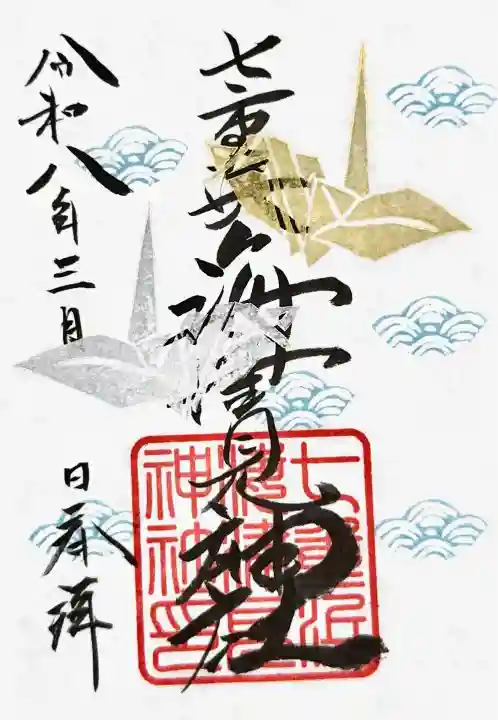 七重浜海津見神社
七重浜
海津見
神社印
令和八年三月 日奉拝